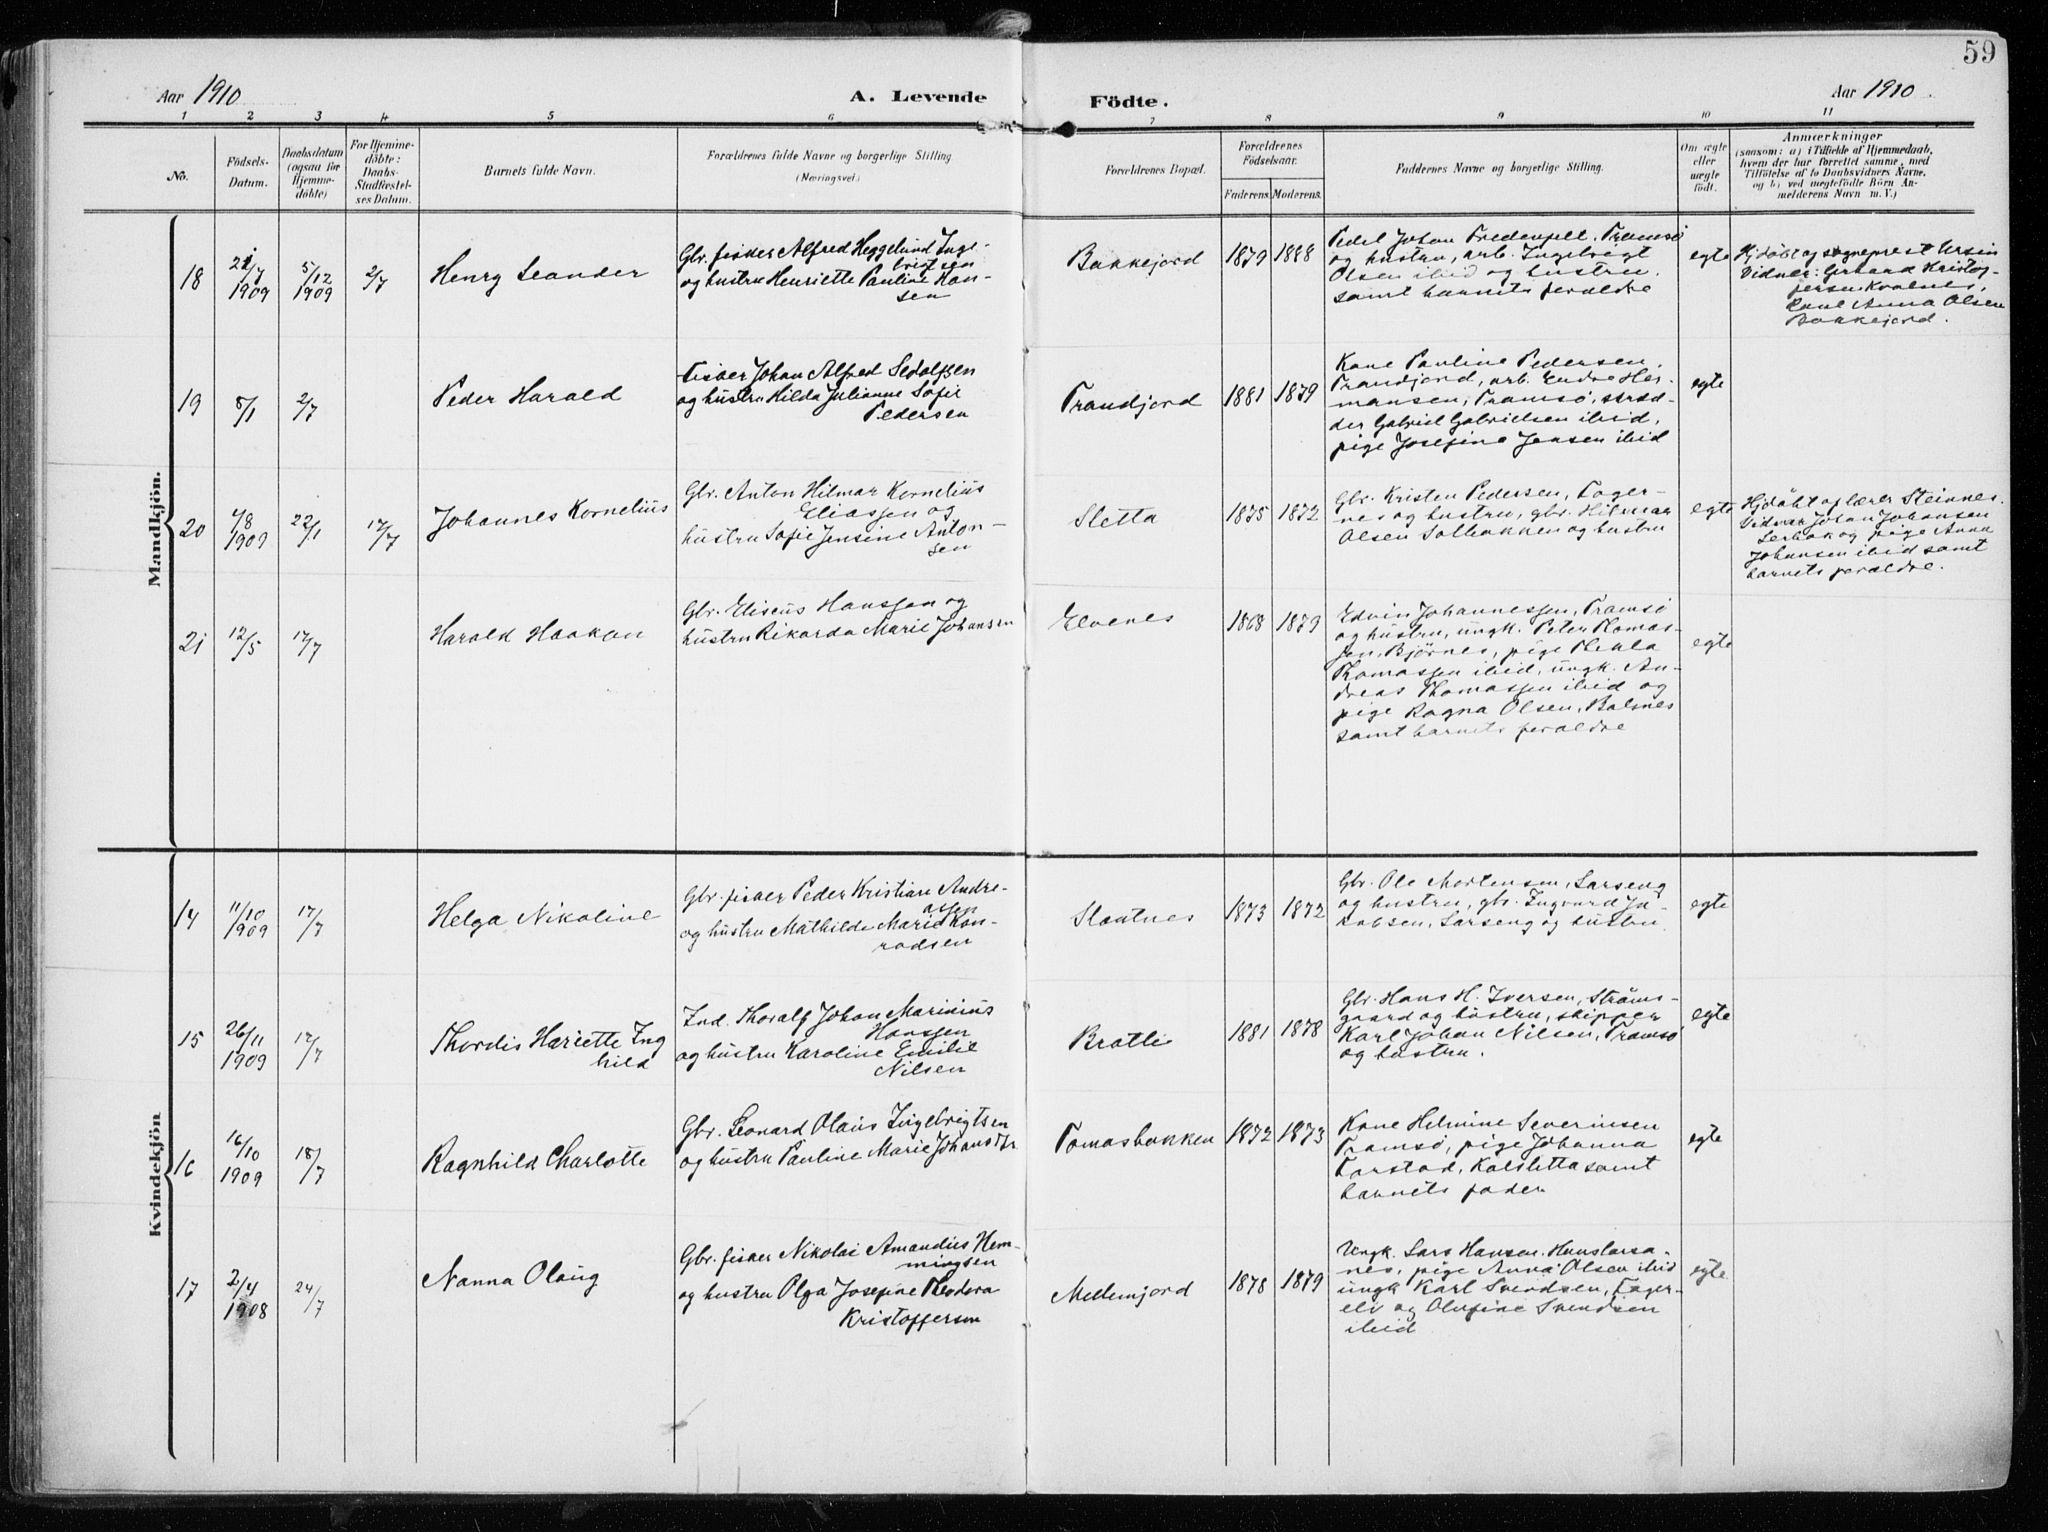 59
Aar 1910
A. Levende
Födte.
Aar 1910
1 2 3 4 5 6 7 8 9 10 11
No.
Födsels-
Datum.
Daabsdatum
(ogsaa for
Hjemme-
döbte)
For Hjemme-
döbte:
Daabs-
Stadfæstel-
ses Datum.
Barnets fulde Navn.
Forældrenes fulde Navne og borgerlige Stilling
(Næringsvei.)
Forældrenes Bopæl.
Forældrenes
Födselsaar.
Faderens
Moderens.
Faddernes Navne og borgerlige Stilling.
Om ægte
eller
uægte
født.
Anmærkninger
(saasom: a) i Tilfælde af Hjemmedaab,
hvem der har forrettet samme, med
Tilföielse af to Daabsvidners Navne,
og b) ved uægtefödte Börn An-
melderens Navn m. V.)
Mandkjön.
18
1909
5/12
1909
2/7
Henry Leander
Gbr. fisker Alfred Heggelund Inge-
brigtsen
og hustru Henriette Pauline Han-
sen
Bakkejord
1879
1888
Johan Fredensfeldt, Tromsø
og hustru, arb. Ingebrigt
Olsen ibid og hustru
samt barnets foreldre
egte
Hjdøbt af sogneprest Ursin
Vidner: Gerhard Kristof-
fersen Kvalnes,
Kone Anna Olsen
Bakkejord.
19
8/1
2/7
Peder Harald
Fisker Johan Alfred Sedolfsen
og hustru Hilda Julianne Sofie
Pedersen
Trandjord
1881
1879
Kone Pauline Pedersen,
Trandjord, arb. Endre Her-
mansen, Tromsø, skræd-
der Gabriel Gabrielsen ibid,
pige Josefine Jensen ibid
egte
20
4/8
1909
22/1
17/7
Johannes Kornelius
Gbr. Anton Hilmar Kornelius
Eliassen og
hustru Sofie Jensine Anton-
sen
Sletta
1875
1872
Gbr. Kristen Pedersen, Fager-
nes og hustru, gbr. Hilmar
Olsen Solbakken og hustru
egte
Hjdøbt af lærer Steinnes.
Vidner Johan Johansen
Lerbak og pige Anna
Johansen ibid samt
barnets foreldre.
21
12/5
17/7
Harald Haakon
Gbr. Eliseus Hansen og
hustru Rikarda Marie Johansen
Elvenes
1868
1879
Edvin Johannessen, Tromsø
og hustru, ungk. Peter Thomas-
sen, Bjørnes, pige Thekla
Thomassen ibid, ungk. An-
dreas Thomassen ibid og
pige Ragna Olsen, Balsnes
samt barnets foreldre
egte
Kvindekjön
14
11/10
1909
17/7
Helga Nikoline
Gbr. fisker Peder Kristian Andre-
assen
og hustru Mathilde Marie Kon-
radsen
Slaatnes
1873
1872
Gbr. Ole Mortensen, Larseng
og hustru, gbr. Ingvard Ja-
kobsen, Larseng og hustru
egte
15
26/11
1909
17/7
Thordis Hariette Ing
hild
Ind. Thoralf Johan Marinius
Hansen
og hustru Karoline Emilie
Nilsen
Bratli
1881
1878
Gbr. Hans H. Iversen, Strøms-
gaard og hustru, skipper
Karl Johan Nilsen, Tromsø
og hustru.
egte
16
16/10
1909
18/7
Ragnhild Charlotte
Gbr. Leonard Olaus Ingebrigtsen
og hustru Pauline Marie Johansdtr
Tomasbakken
1872
1873
Kone Helmine Severinsen
Tromsø, pige Johanna
Forstad, Kalsletta samt
barnets fader
egte
17
2/4
1908
24/7
Nanna Olaug
Gbr. fisker Nikolai Amandus Hem-
mingsen
og hustru Olga Josefine Theodora
Kristoffersen
Mellemjord
1878
1879
Ungk. Lars Hansen. Hanslarsa-
nes, pige Anna Olsen ibid
ungk Karl Svendsen, Fager-
eli og Olufine Svendsen
ibid
egte